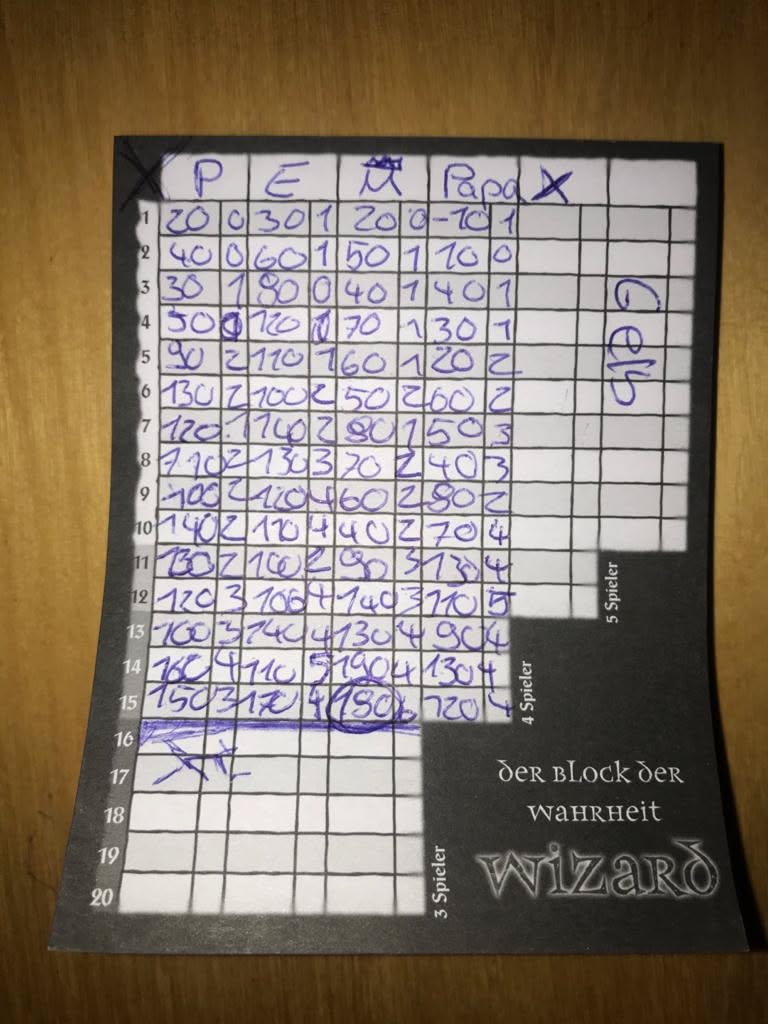 X P E M Papa X
1 20 0 30 1 20 0 -10 1
2 40 0 60 1 50 1 10 0
3 30 1 90 0 40 1 40 1
4 50 0 120 0 70 1 30 1
5 90 2 110 1 60 1 20 2
6 130 2 100 2 50 2 60 2
7 120 1 140 2 80 1 50 3
8 110 2 130 3 70 2 40 3
9 100 2 120 4 60 2 80 2
10 140 2 110 4 40 2 70 4
11 130 2 100 2 90 3 130 4
12 120 3 100 4 140 3 110 5
13 100 3 140 4 130 4 90 4
14 160 4 110 5 190 4 130 4
15 150 3 170 4 180 6 120 4
16
17
18
19
20
Gelb
5 Spieler
4 Spieler
3 Spieler
Der Block der
Wahrheit
Wizard